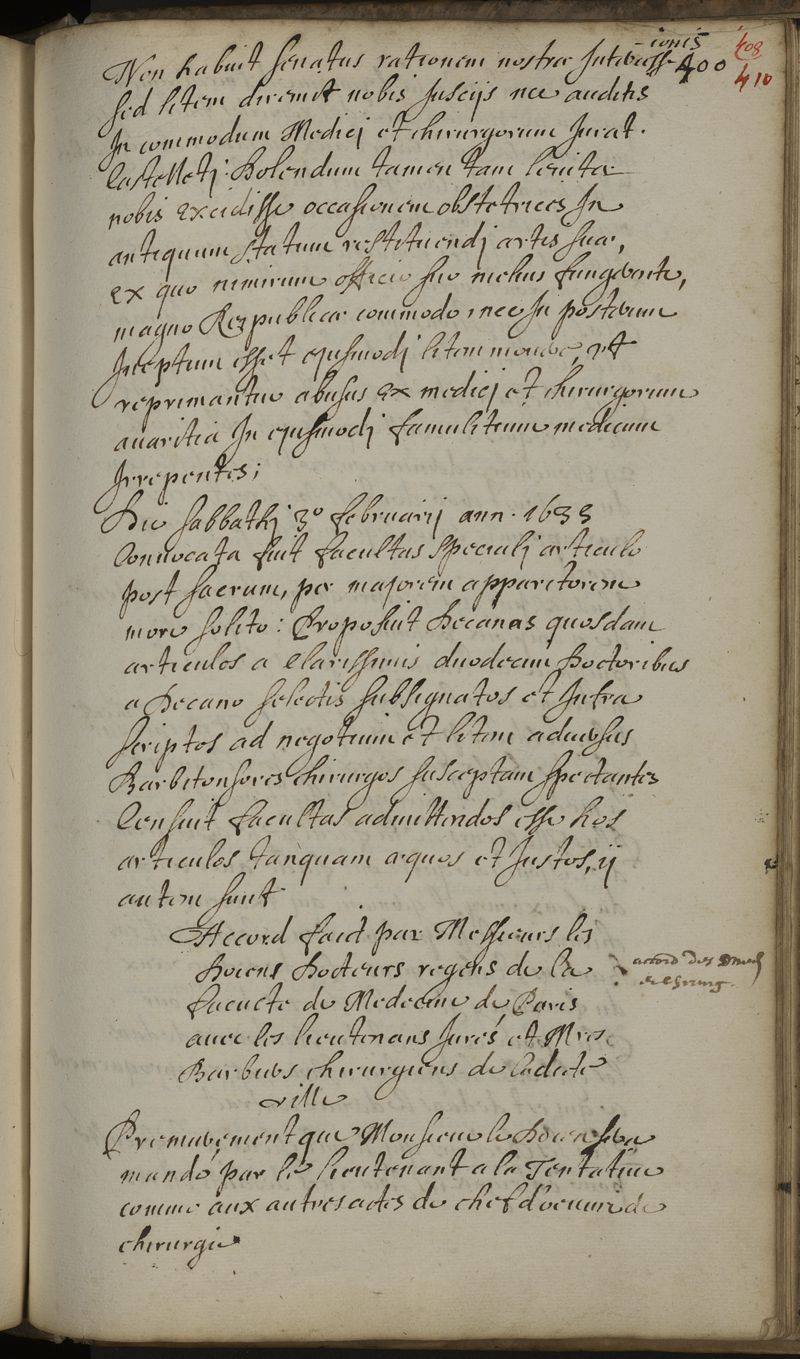 -ionis
408
400
410
Non habuit senatus rationem nostræ Intercess-
sed litem diremit nobis Inscijs nec auditis
In commodum Medicj et chirurgorum Jurat.
Castelletj. Dolendum tamen tam leviter
nobis excidisse occasionem obstetrices In
antiquum statum restituendj artis suæ,
ex quo nimirum officio suo melius fungerentur,
magno Reipublicæ commodo, nec In posterum
Inceptum esset ejusmodj litem mouere, ut
reprimantur abusus ex medicj et chirurgorum
auaritia In ejusmodj famulitium medicum
Irrepentes;
Die sabbathj 3º februarij ann. 1633
Conuocata fuit facultas specialj articulo
post sacrum, per majorem apparitorem
more solito: Proposuit Decanus quosdam
articulos a clarissimis duodecim Doctoribus
a Decano selectis subsignatos et Infra
scriptos ad negotium et litem aduersus
Barbitonsores chirurgos susceptam spectantes
Censuit facultas admittendos esse hos
articulos tanquam æquos et Justos, ij
autem sunt
Accord faict par Messieurs les
Doiens Docteurs regens de la
accord des med
de chirurg.
faculte de Medecine de Paris
auec les lieutenans Jurés et Mres
Barbiers chirurgiens de Ladicte
ville
Premierement que Monsieur le Doien sera
mandé par le lieutenant a la Tentatiue
comme aux autres actes de chef d'oeuure de
chirurgie